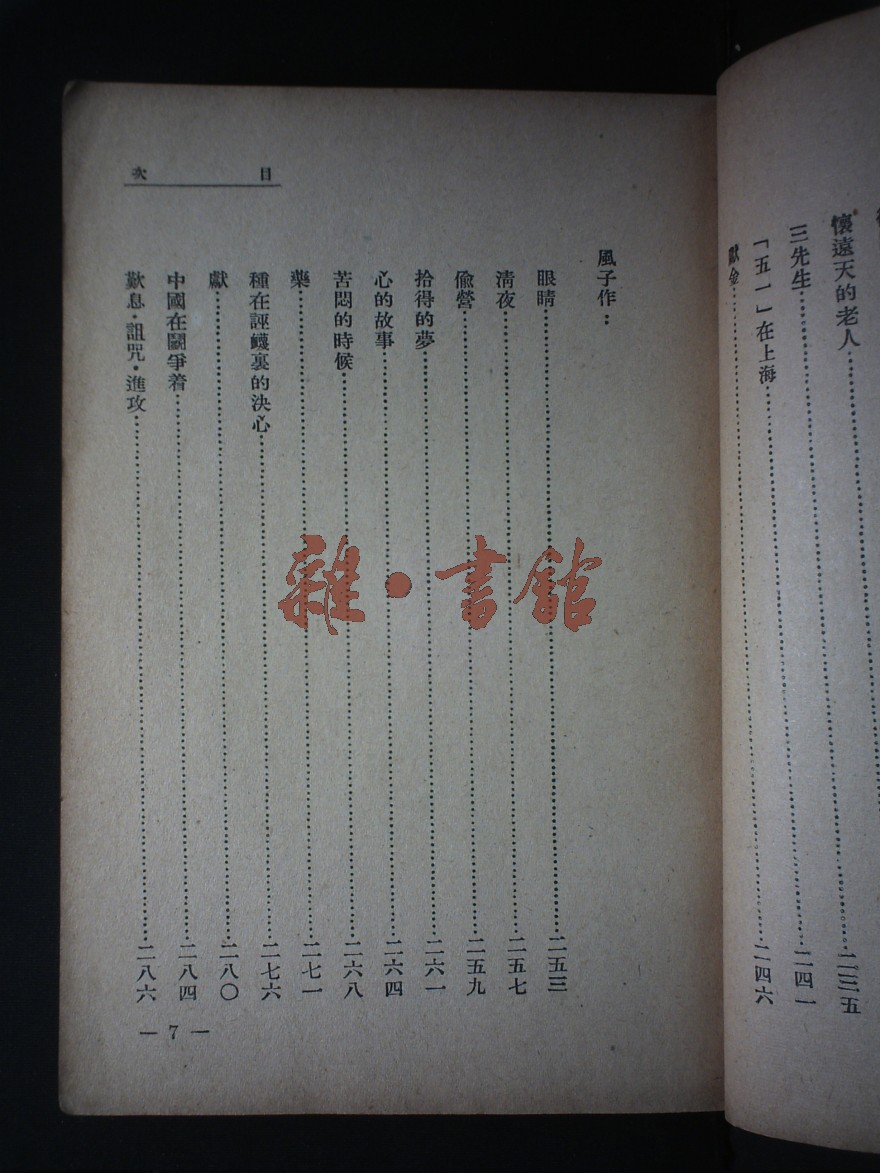 懷遠天的老人……二三五
三先生……二四一
「五一」在上海……二四六
獻金……
目次
風子作：
眼睛……二五三
清夜……二五七
偷營……二五九
拾得的夢……二六一
心的故事……二六四
苦悶的時候……二六八
藥……二七一
種在誣衊裏的決心……二七六
獻……二八〇
中國在鬭爭着……二八四
歎息·詛咒·進攻……二八六
— 7 —
雜·書館